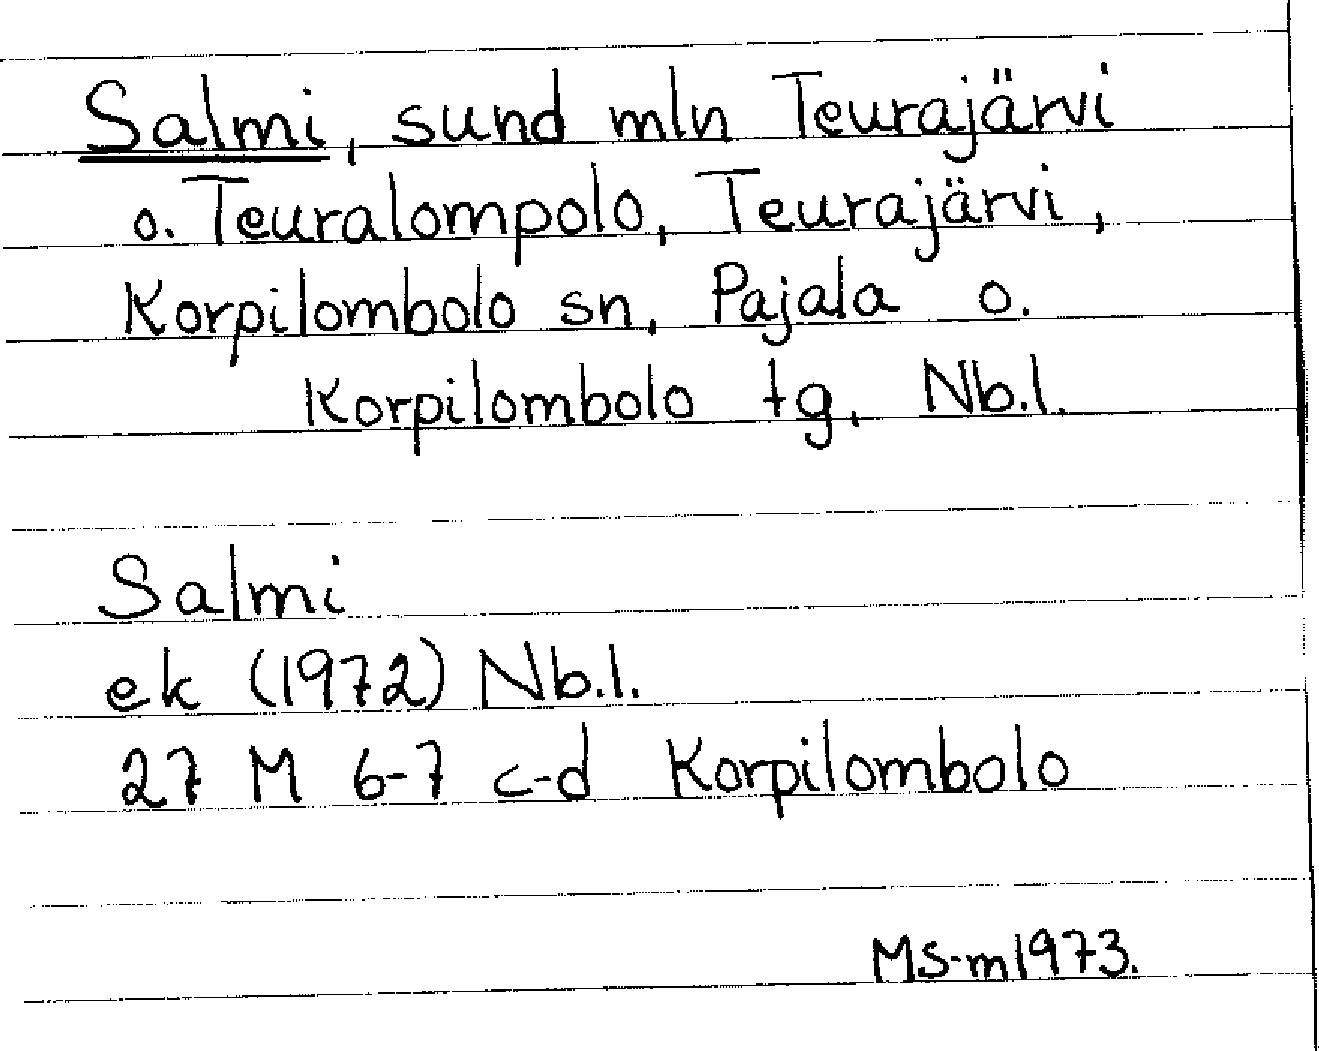 Salmi, sund mln Teurajärvi
o. Teuralompolo, Teurajärvi,
Korpilombolo sn, Pajala o.
Korpilombolo tg, Nb.l.
Salmi
ek (1972) Nb.l.
27 M 6-7 c-d Korpilombolo
MS-m 1973.